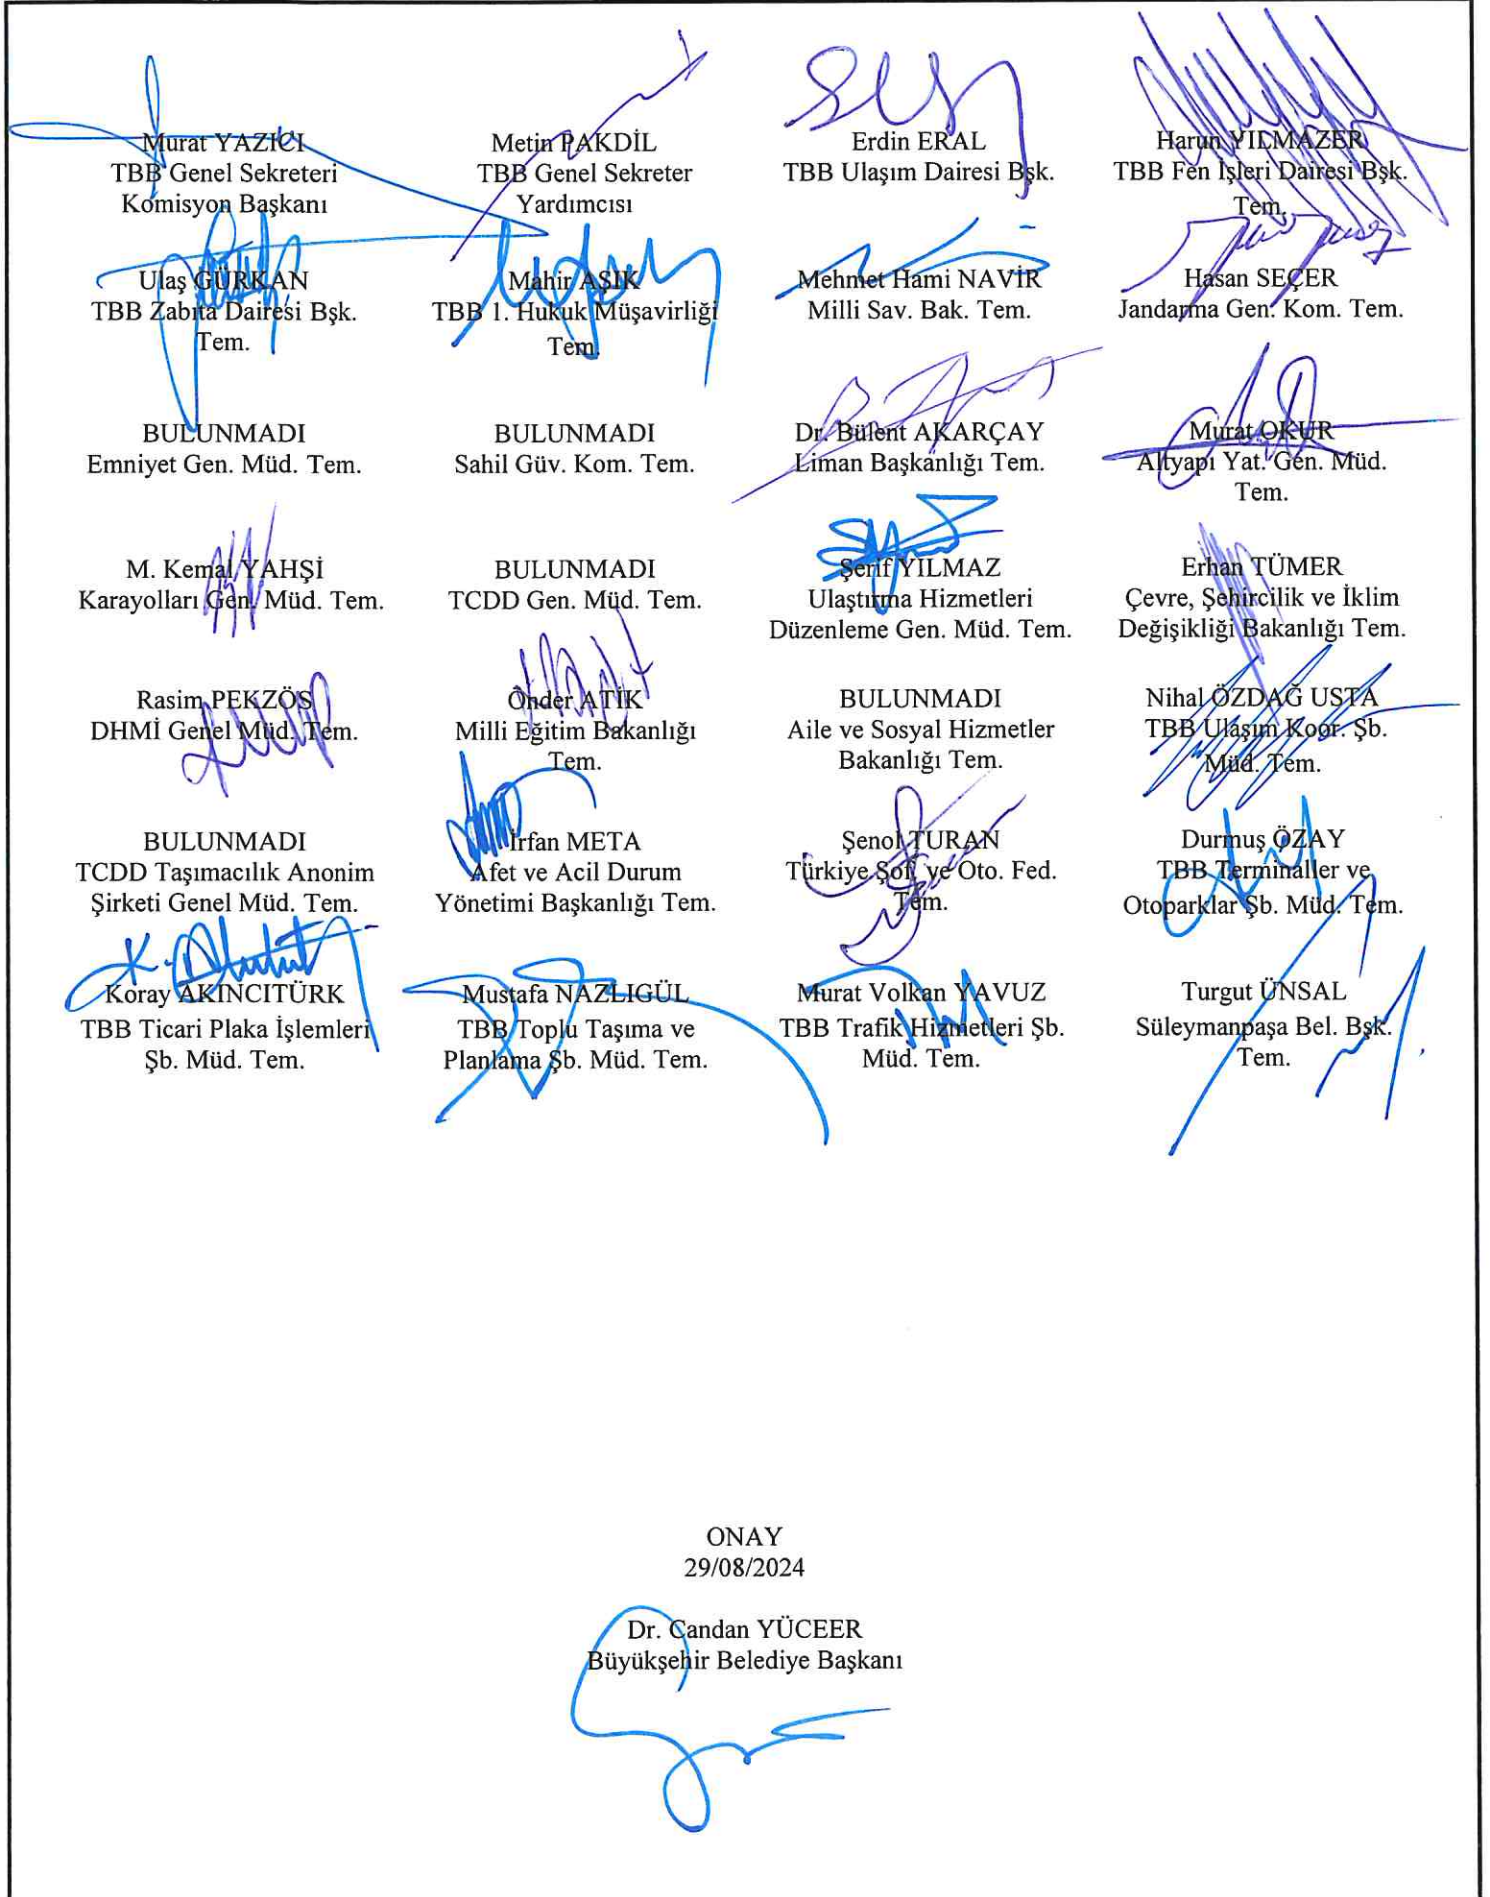 Murat YAZICI
TBB Genel Sekreteri
Komisyon Başkanı
Metin PAKDİL
TBB Genel Sekreter
Yardımcısı
Erdin ERAL
TBB Ulaşım Dairesi Bşk.
Harun YILMAZER
TBB Fen İşleri Dairesi Bşk.
Tem.
Ulaş GÜRKAN
TBB Zabıta Dairesi Bşk.
Tem.
Mahir AŞIK
TBB 1. Hukuk Müşavirliği
Tem.
Mehmet Hami NAVİR
Milli Sav. Bak. Tem.
Hasan SEÇER
Jandarma Gen. Kom. Tem.
BULUNMADI
Emniyet Gen. Müd. Tem.
BULUNMADI
Sahil Güv. Kom. Tem.
Dr. Bülent AKARÇAY
Liman Başkanlığı Tem.
Murat OKUR
Altyapı Yat. Gen. Müd.
Tem.
M. Kemal YAHŞİ
Karayolları Gen. Müd. Tem.
BULUNMADI
TCDD Gen. Müd. Tem.
Şerif YILMAZ
Ulaştırma Hizmetleri
Düzenleme Gen. Müd. Tem.
Erhan TÜMER
Çevre, Şehircilik ve İklim
Değişikliği Bakanlığı Tem.
Rasim PEKZÖS
DHMİ Genel Müd. Tem.
Önder ATİK
Milli Eğitim Bakanlığı
Tem.
BULUNMADI
Aile ve Sosyal Hizmetler
Bakanlığı Tem.
Nihal ÖZDAĞ USTA
TBB Ulaşım Koor. Şb.
Müd. Tem.
BULUNMADI
TCDD Taşımacılık Anonim
Şirketi Genel Müd. Tem.
İrfan META
Afet ve Acil Durum
Yönetimi Başkanlığı Tem.
Şenol TURAN
Türkiye Şof. ve Oto. Fed.
Tem.
Durmuş ÖZAY
TBB Terminaller ve
Otoparklar Şb. Müd. Tem.
Koray AKINCITÜRK
TBB Ticari Plaka İşlemleri
Şb. Müd. Tem.
Mustafa NAZLIGÜL
TBB Toplu Taşıma ve
Planlama Şb. Müd. Tem.
Murat Volkan YAVUZ
TBB Trafik Hizmetleri Şb.
Müd. Tem.
Turgut ÜNSAL
Süleymanpaşa Bel. Bşk.
Tem.
ONAY
29/08/2024
Dr. Candan YÜCEER
Büyükşehir Belediye Başkanı